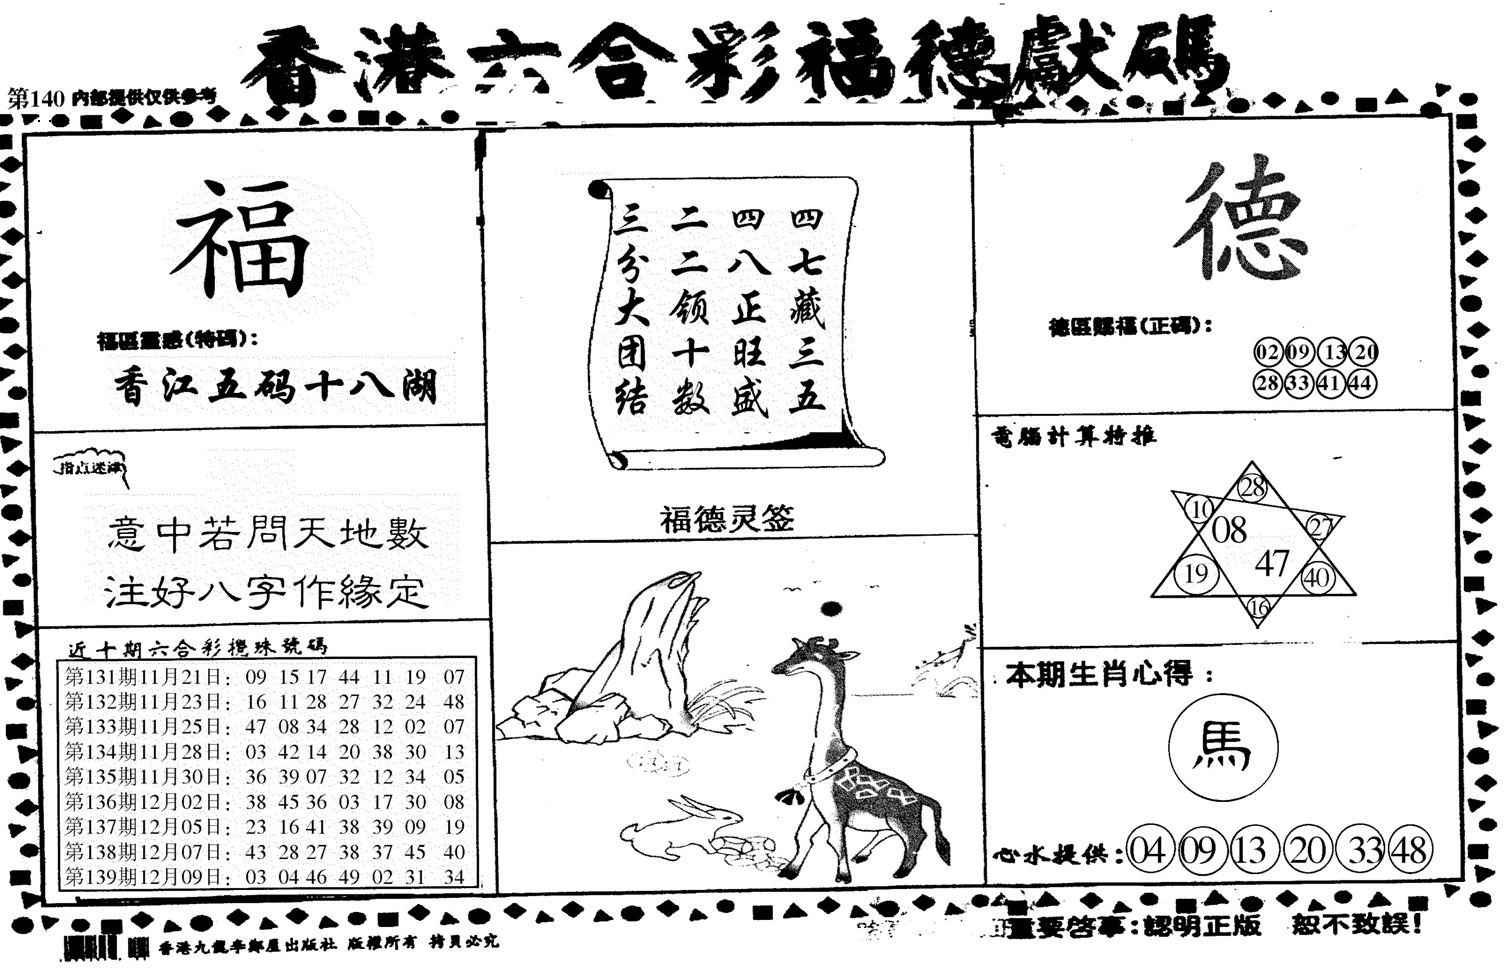 香港六合彩福德獻碼
第140 内部提供仅供参考
福
福區靈感(特碼):
香江五码十八湖
指点迷津
意中若問天地數
注好八字作緣定
近十期六合彩攪珠號碼
第131期11月21日: 09 15 17 44 11 19 07
第132期11月23日: 16 11 28 27 32 24 48
第133期11月25日: 47 08 34 28 12 02 07
第134期11月28日: 03 42 14 20 38 30 13
第135期11月30日: 36 39 07 32 12 34 05
第136期12月02日: 38 45 36 03 17 30 08
第137期12月05日: 23 16 41 38 39 09 19
第138期12月07日: 43 28 27 38 37 45 40
第139期12月09日: 03 04 46 49 02 31 34
四七藏三五
四八正旺盛
二二领十数
三分大团结
福德灵签
德
德區賜福(正碼):
02 09 13 20
28 33 41 44
電腦計算特推
28
10
27
08
47
19
40
16
本期生肖心得:
馬
心水提供: 04 09 13 20 33 48
香港九龍李鄭屋出版社 版權所有 拷貝必究
重要啓事:認明正版 恕不致誤!